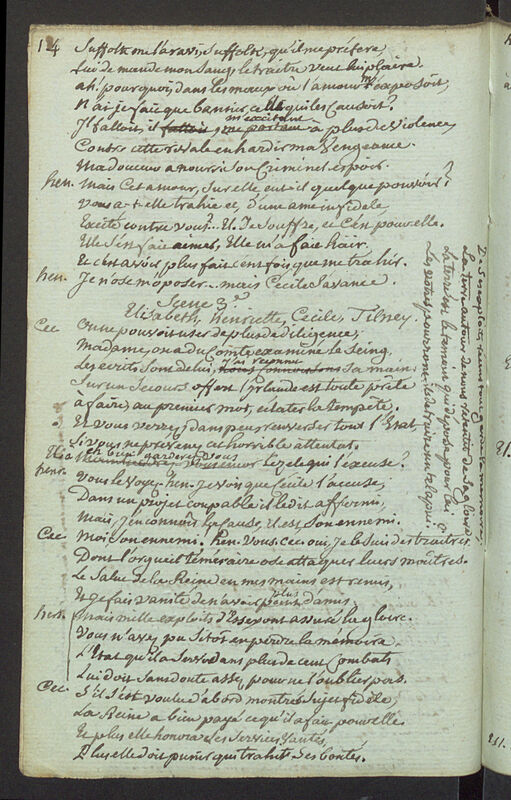 14 Suffolk me l'a ravi, Suffolk, qu'il me préfère
Lui demande mon Sang, le traitre veut lui plaire
ah! pourquoi, dans les maux où l'amour m'exposoit,
N'ai je fait que bannir celle qui les Causoit?
Il falloit, il m'excitant à plus de Violence,
Contre cette rivale enhardir ma Vengeance.
Ma douceur a nourri Son Criminel espoir.
hen. Mais Cet amour, Sur elle eut-il quelque pouvoir?
Vous a-t-elle trahie et, d'une ame infidele
Excité contre vous?.. El. Je Souffre, et C'est pour elle.
Elle s'est fait aimer, Elle m'a fait haïr.
Et c'est avoir plus fait cent fois que me trahir.
hen. Je n'ose m'opposer.. mais Cecile s'avance.
Scene 3e
Elisabeth, Henriette, Cecile, Tilney.
Cec On ne pouvoit user de plus de diligence;
Madame, on a du Comte examiné le Seing,
Les écrits Sont de lui, j'ai reconnu Sa main:
Sur un Secours offert l'Irlande est toute prète
à faire, au premier mot, éclater la tempête.
Et vous verrez, dans peu, renverser tout l'Etat,
Si vous ne prévenez cet horrible attentat.
Garderez vous encor le zele qui l'excuse?
Vous le voyez. hen. Je vois que Cecile l'accuse,
Dans un projet coupable il le dit affermi,
Mais, j'en connois la Cause, il est Son ennemi.
Cec Moi Son ennemi. hen. Vous. Cec. oui, Je le Suis des traitres
Dont l'orgueil téméraire ose attaquer leurs maitres.
Le Salut de la Reine en mes mains est remis,
Et je fais vanité de n'avoir plus d'amis.
hen. Mais mille exploits d'Essex ont assuré la gloire.
Vous n'avez pu Sitôt en perdre la mémoire
L'Etat qu'il a Servi dans plus de cent Combats
Lui doit Sans doute assez pour ne l'oublier pas.
Cec. S'il s'est voulu d'abord montrer Sujet fidéle
La Reine a bien payé ce qu'il a fait pour elle
Et plus elle honora ses Services vantés,
Plus elle doit punir qui trahit Ses bontés.
De Ses exploits rien tous gardent la mémoire,
La terre autour de nous retentit de Sa gloire.